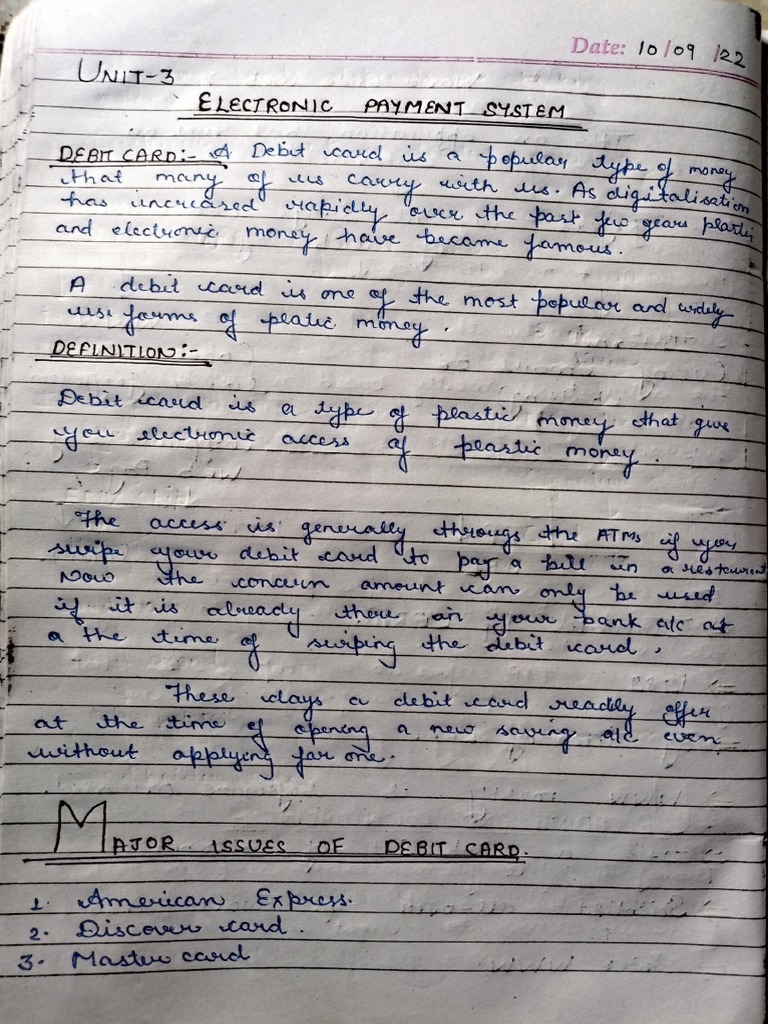 Date: 10/09/22
UNIT-3
ELECTRONIC PAYMENT SYSTEM
DEBIT CARD:- A Debit card is a popular type of money
that many of us carry with us. As digitalisation
has increased rapidly over the past few years plastic
and electronic money have became famous.
A debit card is one of the most popular and widely
use forms of platic money.
DEFINITION:-
Debit card is a type of plastic money that give
you electronic access of plastic money.
The access is generally through the ATMs if you
swipe your debit card to pay a bill in a restaurent
Now the concern amount can only be used
if it is already there in your bank a/c at
a the time of swiping the debit card,
These days a debit card readily offer
at the time of opening a new saving a/c even
without applying for one.
MAJOR ISSUES OF DEBIT CARD.
1. American Express.
2. Discover card.
3. Master card